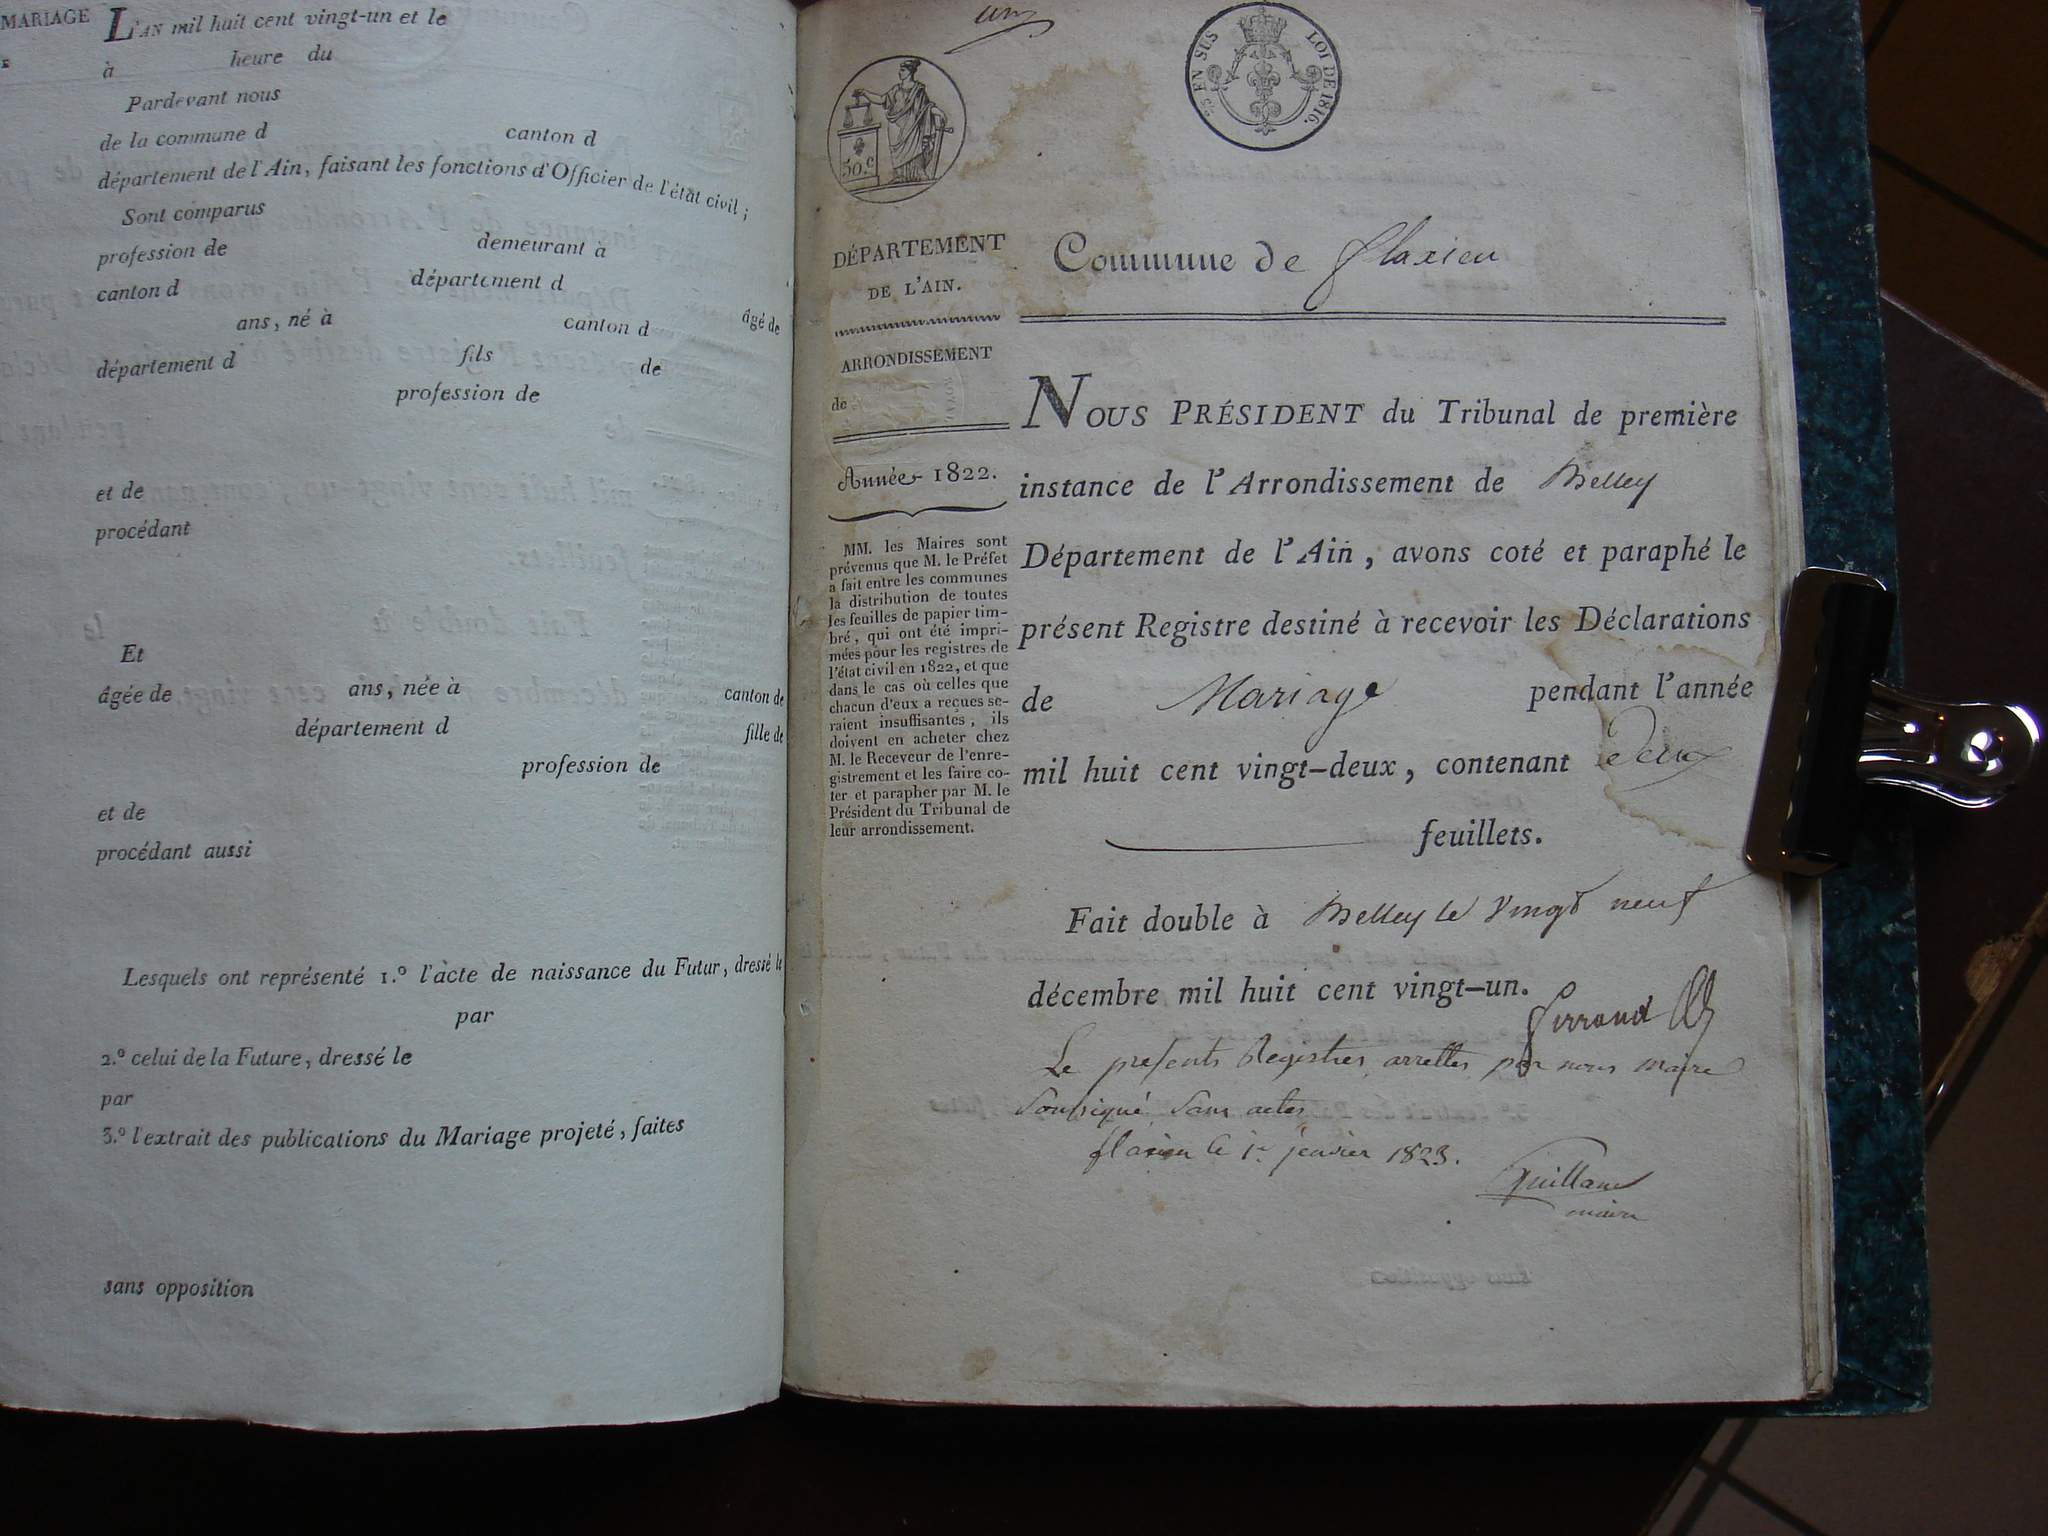 MARIAGE
L'AN mil huit cent vingt-un et le
à heure du
Pardevant nous
de la commune d canton d
département de l'Ain, faisant les fonctions d'Officier de l'état civil ;
Sont comparus
profession de demeurant à
canton d département d
âgé de
ans, né à canton d
département d fils de
profession de
et de
procédant
Et
âgée de ans, née à canton de
département d fille de
profession de
et de
procédant aussi
Lesquels ont représenté 1.º l'acte de naissance du Futur, dressé le
par
2.º celui de la Future, dressé le
par
3.º l'extrait des publications du Mariage projeté, faites
sans opposition
un
50.c
EN SUS LOI DE 1816.
DÉPARTEMENT
DE L'AIN.
ARRONDISSEMENT
de
Année 1822.
MM. les Maires sont
prévenus que M. le Préfet
a fait entre les communes
la distribution de toutes
les feuilles de papier tim-
bré, qui ont été impri-
mées pour les registres de
l'état civil en 1822, et que
dans le cas où celles que
chacun d'eux a reçues se-
raient insuffisantes, ils
doivent en acheter chez
M. le Receveur de l'enre-
gistrement et les faire co-
ter et parapher par M. le
Président du Tribunal de
leur arrondissement.
Commune de flaxieu
NOUS PRÉSIDENT du Tribunal de première
instance de l'Arrondissement de Belley
Département de l'Ain, avons coté et paraphé le
présent Registre destiné à recevoir les Déclarations
de Mariage pendant l'année
mil huit cent vingt-deux, contenant deux
feuillets.
Fait double à Belley le vingt neuf
décembre mil huit cent vingt-un.
Ferrand
Le presents Registres arrettes par nous maire
Soussigné Sans actes
flaxieu le 1er janvier 1823.
Guillame
maire